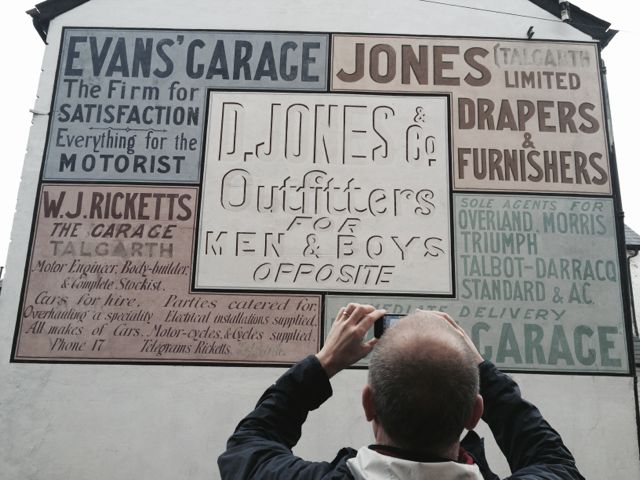 EVANS' GARAGE
The Firm for
SATISFACTION
Everything for the
MOTORIST
JONES (TALGARTH
LIMITED
DRAPERS
&
FURNISHERS
D. JONES & Co.
Outfitters
FOR
MEN & BOYS
OPPOSITE
W.J. RICKETTS
THE GARAGE
TALGARTH
Motor Engineer, Body-builder,
& Complete Stockist.
Cars for hire. Parties catered for.
Overhauling a speciality Electrical installations supplied.
All makes of Cars, Motor-cycles, & Cycles supplied.
Phone 17 Telegrams Ricketts.
SOLE AGENTS FOR
OVERLAND, MORRIS
TRIUMPH
TALBOT-DARRACQ
STANDARD & A.C.
DELIVERY
GARAGE